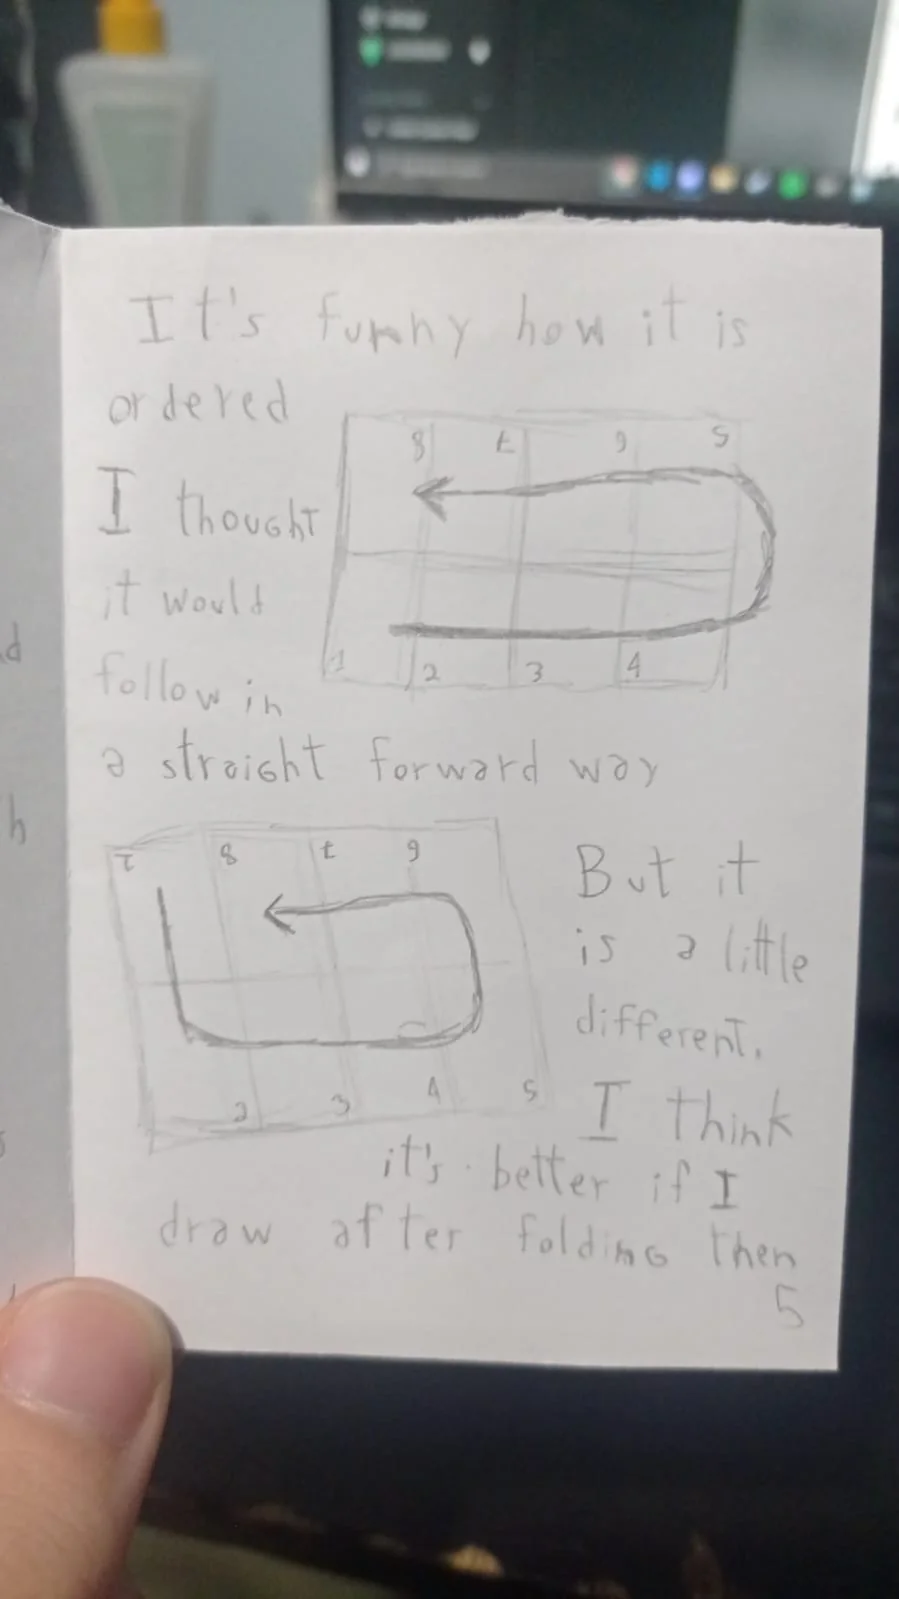 It's funny how it is
ordered
8 7 6 5
I thought
it would
follow in
1 2 3 4
a straight forward way
1 8 7 6
But it
is a little
different.
2 3 4 5
I think
it's better if I
draw after folding then
5